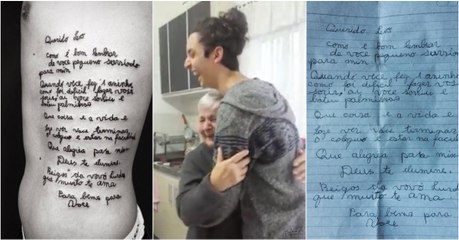 Querido Léo
como é bom lembrar
de voce pequeno sorrindo
para mim
Quando voce fez 1 aninho
como foi dificil fazer
fotos, ai voce sorriu e
bateu palminhas
Que coisa é a vida e
hoje terminar
o colegio e estar na
Que alegria para mim
Deus te ilumine.
Beijos da vovó
que muito te ama
Para bens para
Voce
Querido Léo
como é bom lembrar
de voce pequeno sorrindo
para mim
Quando voce fez 1 aninho
como foi dificil fazer
fotos, ai voce sorriu e
bateu palminhas
Que coisa é a vida e
hoje terminar
o colegio e estar na
Que alegria para mim
Deus te ilumine.
Beijos da vovó
que muito te ama
Para bens para
Voce